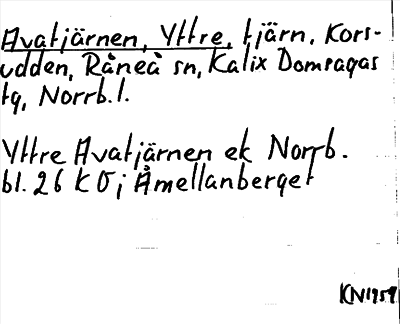 Avatjärnen, Yttre, tjärn, Kors-
udden, Råneå sn, Kalix Domsagas
tg, Norrb. l.
Yttre Avatjärnen ek Norrb.
bl. 26 KO; Åmellanberget
KN 1959